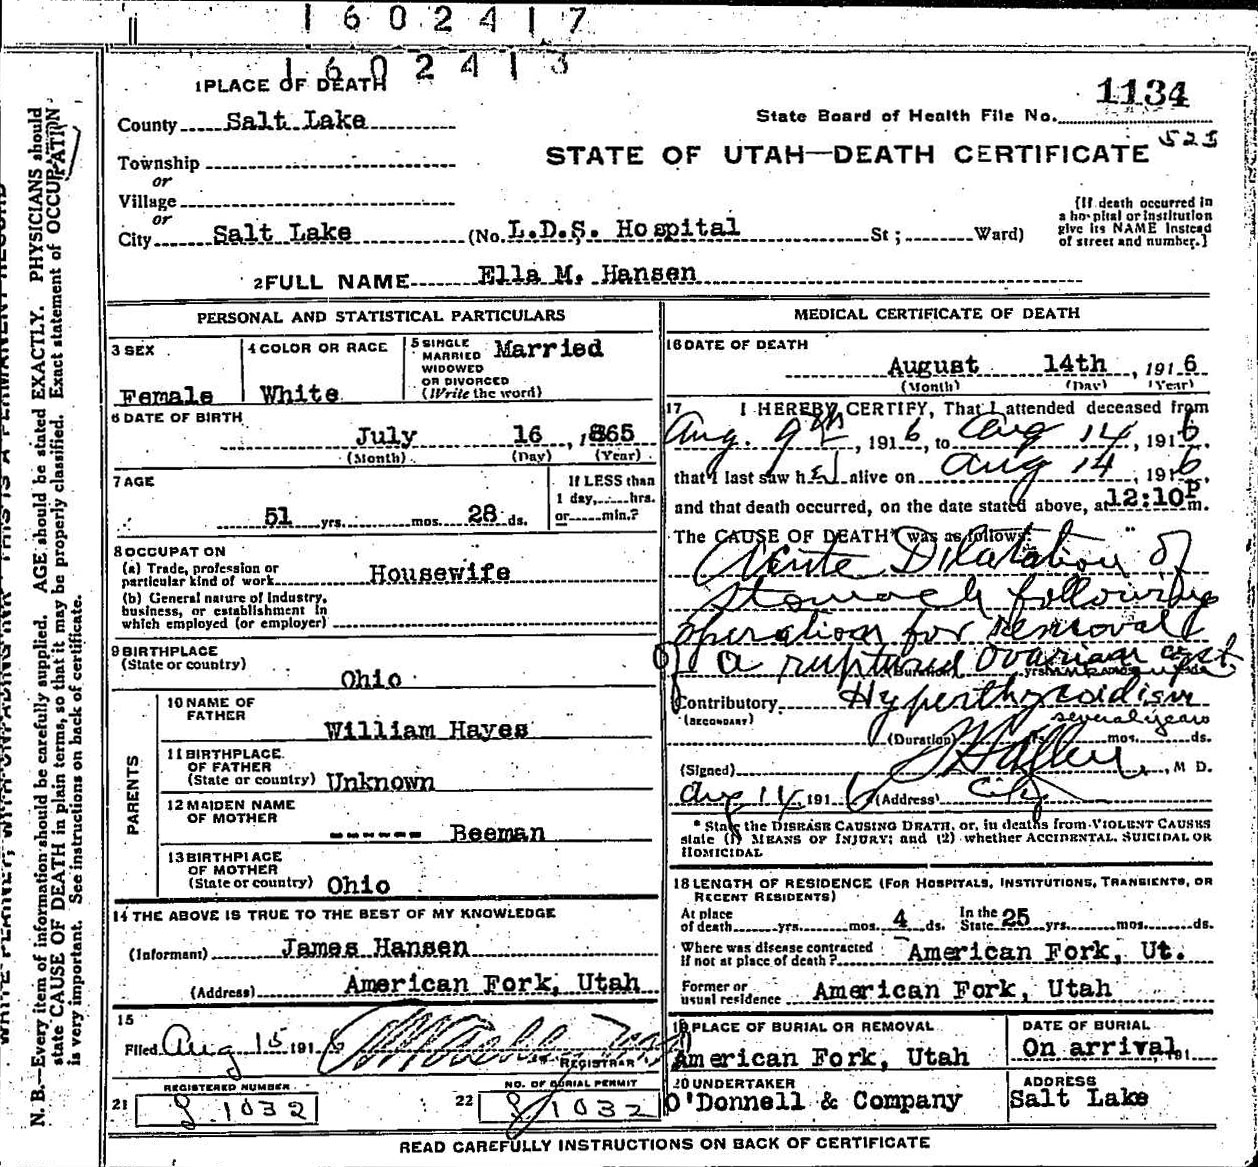 1602417
1602413
1 PLACE OF DEATH
1134
State Board of Health File No.
County Salt Lake
525
STATE OF UTAH—DEATH CERTIFICATE
Township
or
Village
or
City Salt Lake (No. L.D.S. Hospital St ; Ward)
[If death occurred in
a hospital or institution
give its NAME instead
of street and number.]
2 FULL NAME Ella M. Hansen
PERSONAL AND STATISTICAL PARTICULARS
3 SEX
Female
4 COLOR OR RACE
White
5 SINGLE
MARRIED
WIDOWED
OR DIVORCED
(Write the word)
Married
6 DATE OF BIRTH
July 16, 1865
(Month) (Day) (Year)
7 AGE
51 yrs. mos. 28 ds.
If LESS than
1 day, hrs.
or min.?
8 OCCUPATON
(a) Trade, profession or
particular kind of work Housewife
(b) General nature of Industry,
business, or establishment in
which employed (or employer)
9 BIRTHPLACE
(State or country)
Ohio
PARENTS
10 NAME OF
FATHER
William Hayes
11 BIRTHPLACE
OF FATHER
(State or country) Unknown
12 MAIDEN NAME
OF MOTHER
------ Beeman
13 BIRTHPLACE
OF MOTHER
(State or country) Ohio
14 THE ABOVE IS TRUE TO THE BEST OF MY KNOWLEDGE
(Informant) James Hansen
(Address) American Fork, Utah
15
Filed Aug 15 191
REGISTRAR
REGISTERED NUMBER
21 1032
NO. OF BURIAL PERMIT
22 1032
MEDICAL CERTIFICATE OF DEATH
16 DATE OF DEATH
August 14th, 1916
(Month) (Day) (Year)
17 I HEREBY CERTIFY, That I attended deceased from
Aug. 9th, 1916, to Aug 14, 1916,
that I last saw her alive on Aug 14 1916
and that death occurred, on the date stated above, at 12:10P m.
The CAUSE OF DEATH* was as follows:
Acute Dilatation of
stomach following
operation for removal
of a ruptured ovarian cyst.
(Duration) yrs. mos. ds.
Contributory Hyperthyroidism
(SECONDARY)
several years
(Duration) yrs. mos. ds.
(Signed) , M D.
Aug 14, 1916 (Address) City
* State the DISEASE CAUSING DEATH, or, in deaths from VIOLENT CAUSES
state (1) MEANS OF INJURY; and (2) whether ACCIDENTAL, SUICIDAL OR
HOMICIDAL
18 LENGTH OF RESIDENCE (FOR HOSPITALS, INSTITUTIONS, TRANSIENTS, OR
RECENT RESIDENTS)
At place
of death yrs. mos. 4 ds.
In the
State 25 yrs. mos. ds.
Where was disease contracted
if not at place of death? American Fork, Ut.
Former or
usual residence American Fork, Utah
19 PLACE OF BURIAL OR REMOVAL
American Fork, Utah
DATE OF BURIAL
On arrival 191
20 UNDERTAKER
O'Donnell & Company
ADDRESS
Salt Lake
READ CAREFULLY INSTRUCTIONS ON BACK OF CERTIFICATE
N. B.—Every item of information should be carefully supplied. AGE should be stated EXACTLY. PHYSICIANS should
state CAUSE OF DEATH in plain terms, so that it may be properly classified. Exact statement of OCCUPATION
is very important. See instructions on back of certificate.